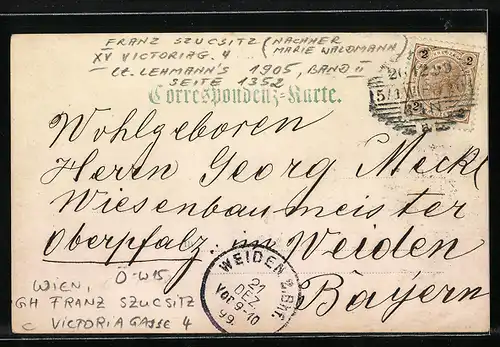 FRANZ SZUCSITZ (NACHHER
MARIE WALDMANN)
XV VICTORIAG. 4 ...
- Lt. LEHMANN'S 1905, BAND II
SEITE 1352
Correspondenz-Karte.
2 2
Wohlgeboren
Herrn Georg Meckl
Wiesenbaumeister
Oberpfalz in Weiden
Bayern
WEIDEN 2.Bhf.
21
DEZ.
Vor 9-10
99.
WIEN, Ö-W15
GH FRANZ SZUCSITZ
C VICTORIA GASSE 4